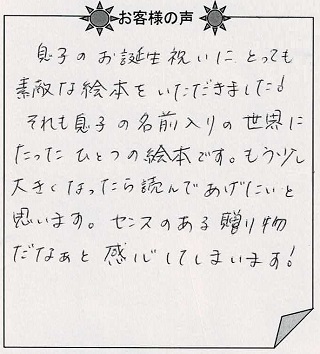 お客様の声
息子のお誕生祝いに とっても
素敵な絵本をいただきました!
それも息子の名前入りの世界に
たったひとつの絵本です。もう少し
大きくなったら読んであげたいと
思います。センスのある贈り物
だなぁと感心してしまいます!